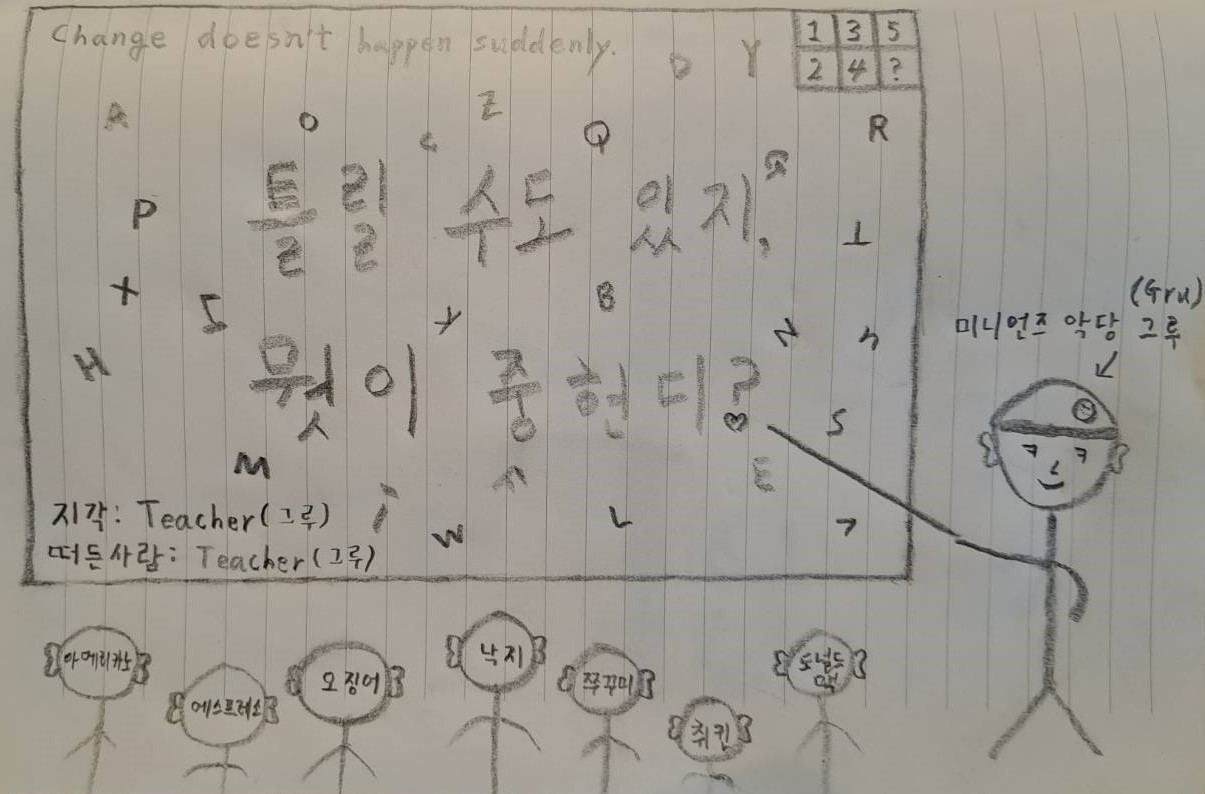 Change doesn't happen suddenly.
1 3 5
2 4 ?
D Y
A O C Z Q R
틀릴 수도 있지,
P T
X I Y B N
H
뭣이 중헌디?
S
M E
지각: Teacher(그루)
i W L
떠든사람: Teacher(그루)
(Gru)
미니언즈 악당 그루
ㅋ ㅋ
아메리카노 에스프레소 오징어 낙지 쭈꾸미 취킨 도널드
맥